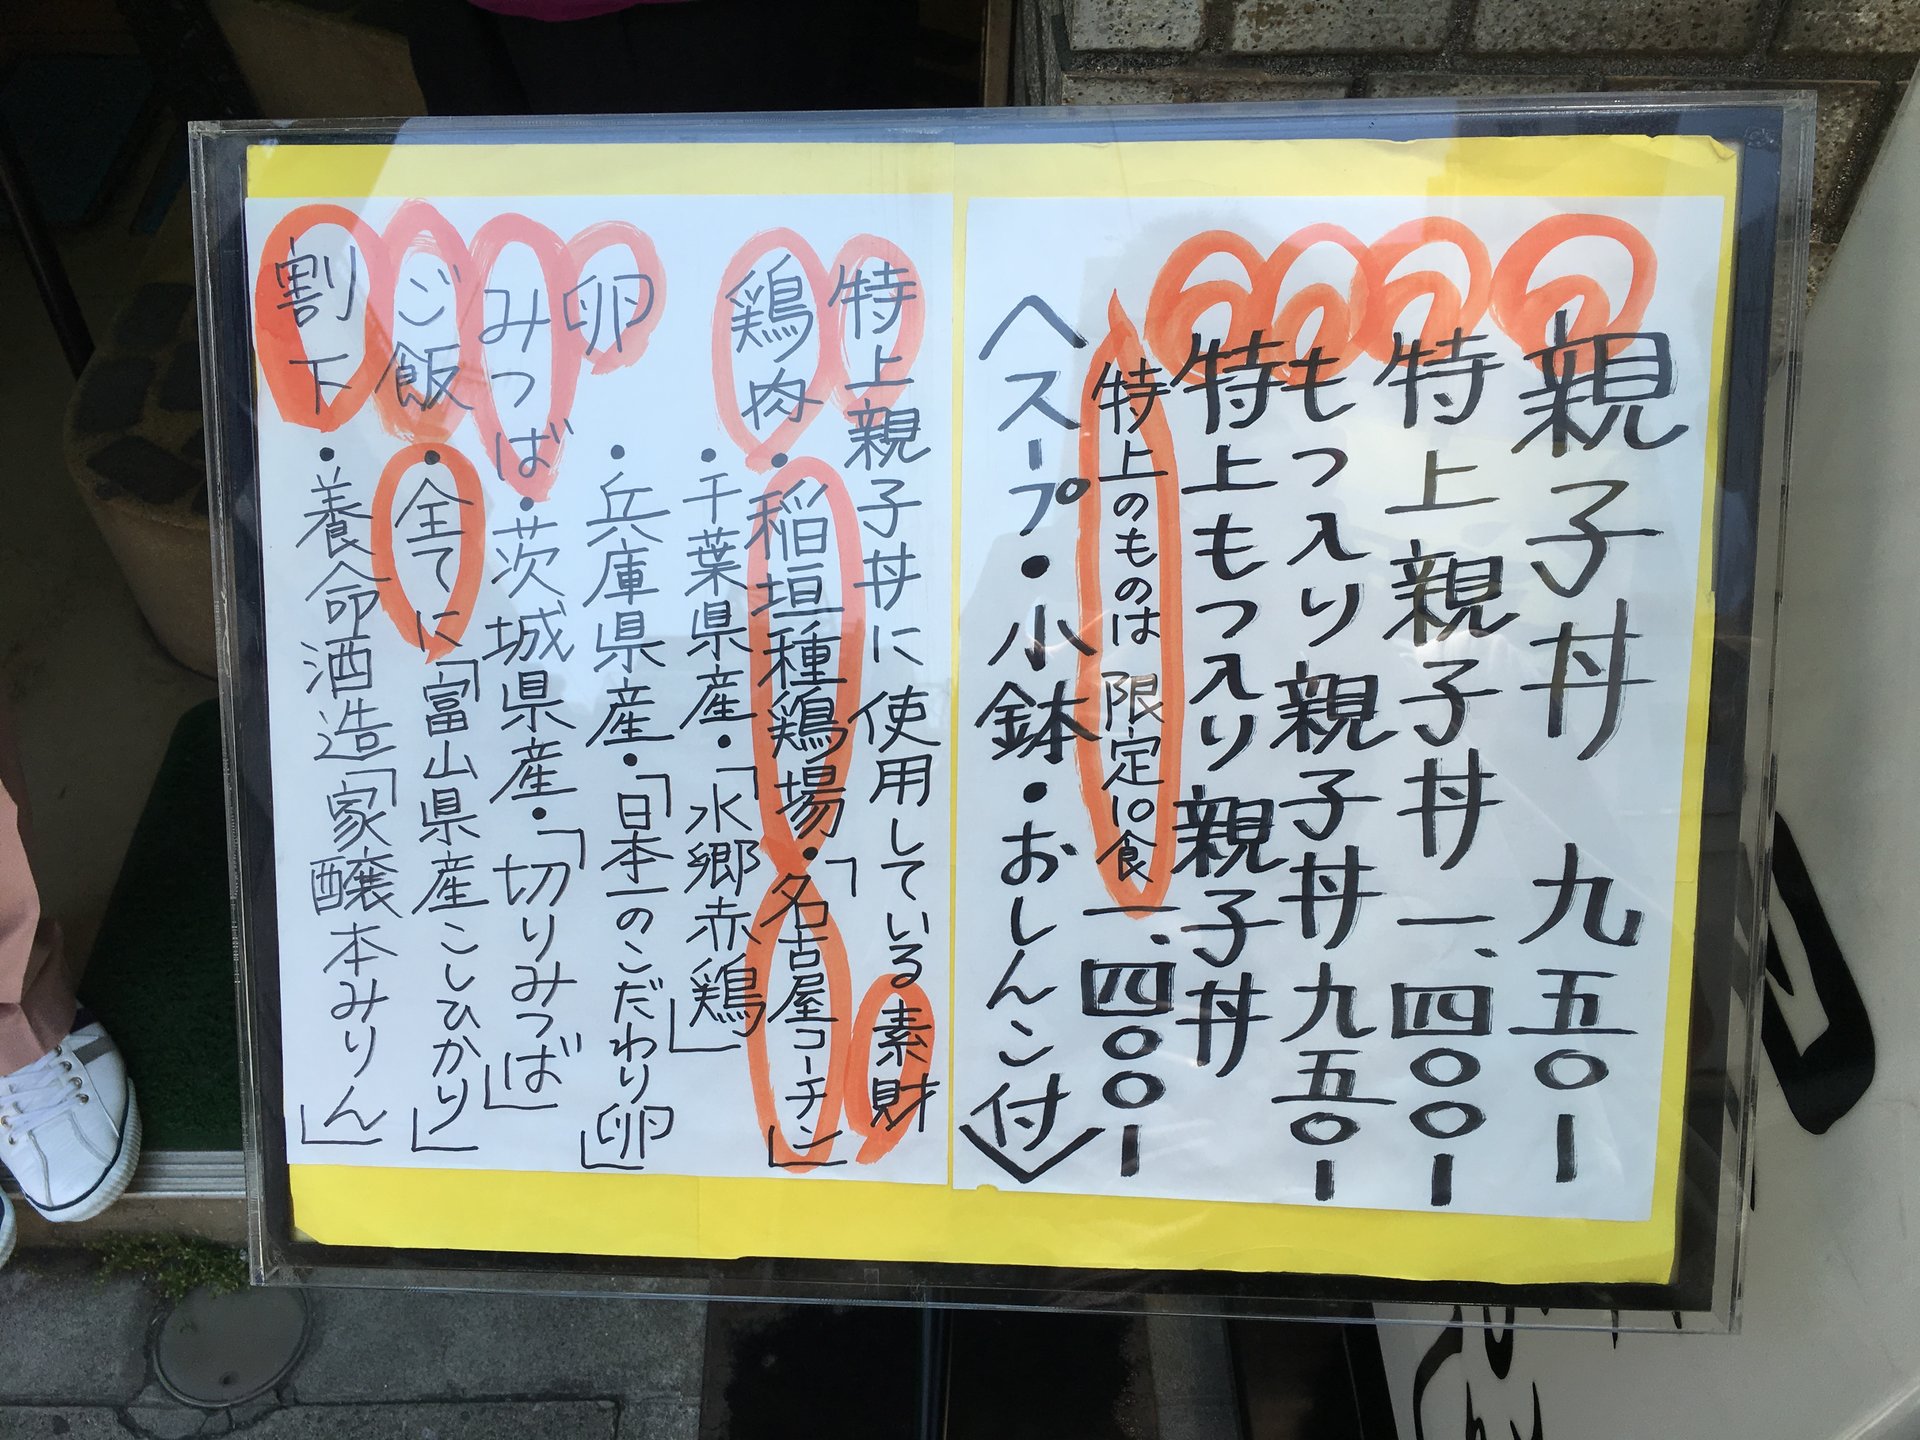 親子丼 九五〇ー
特上親子丼 一、四〇〇ー
もつ入り親子丼 九五〇ー
特上もつ入り親子丼
一、四〇〇ー
特上のものは限定10食
〈スープ・小鉢・おしんこ付〉
特上親子丼に使用している素財
鶏肉・稲垣種鶏場・「名古屋コーチン」
・千葉県産・「水郷赤鶏」
卵・兵庫県産・「日本一のこだわり卵」
みつば・茨城県産・「切りみつば」
ご飯・全てに「富山県産こしひかり」
割下・養命酒造「家醸本みりん」